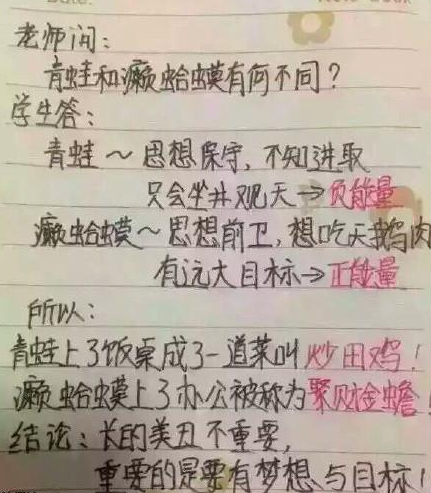 老师问:
青蛙和癞蛤蟆有何不同?
学生答:
青蛙~思想保守,不知进取
只会坐井观天→负能量
癞蛤蟆~思想前卫,想吃天鹅肉
有远大目标→正能量
所以:
青蛙上了饭桌成了一道菜叫炒田鸡!
癞蛤蟆上了办公被称为聚财金蟾!
结论:长的美丑不重要,
重要的是要有梦想与目标!